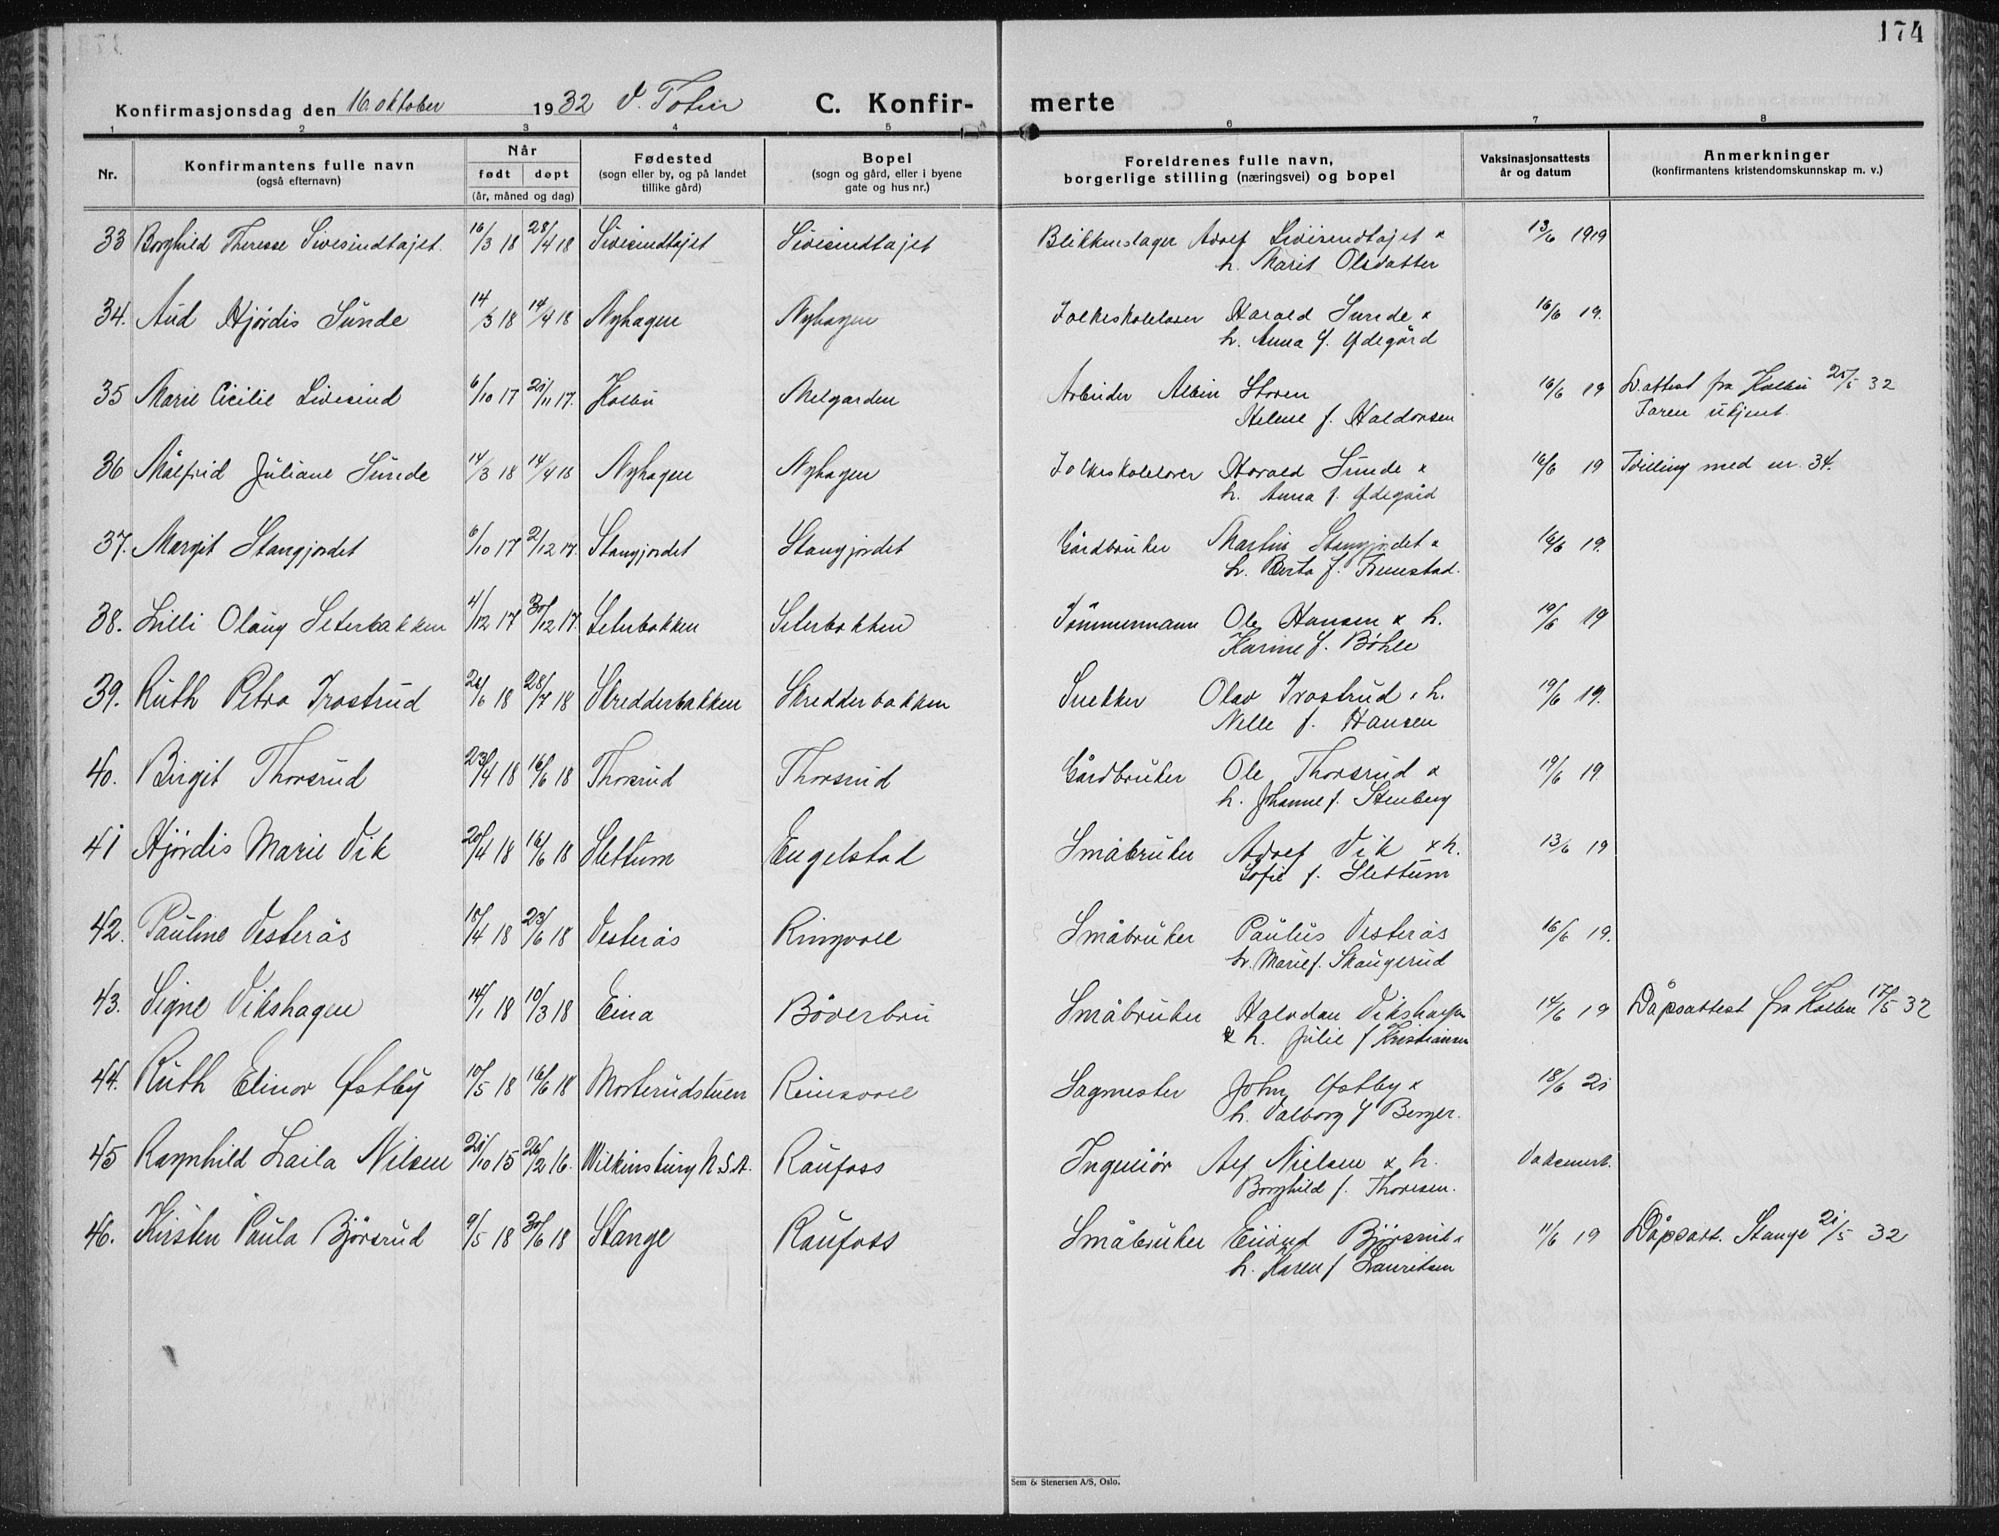 174
Konfirmasjonsdag den 16 oktober 1932 V. Toten C. Konfir- merte
1 2 3 4 5 6 7 8
Nr. Konfirmantens fulle navn (også efternavn) Når født døpt (år, måned og dag) Fødested (sogn eller by, og på landet tillike gård) Bopel (sogn og gård, eller i byene gate og hus nr.) Foreldrenes fulle navn, borgerlige stilling (næringsvei) og bopel Vaksinasjonsattests år og datum Anmerkninger (konfirmantens kristendomskunnskap m. v.)
33 Borghild Therese Sivesindtajet. 16/3 18 28/4 18 Sivesindtajet Sivesindtajet Blikkenslager Adolf Sivesindtajet & 13/6 1919
h. Marit Olsdatter
34. Aud Hjørdis Sunde 14/3 18 14/4 18 Nyhagen Nyhagen Folkeskolelærer Harald Sunde & 16/6 19.
h. Anna f. Ødegård
35 Marie Cicilie Sivesind 6/10 17 21/11 17. Kolbu Melgarden Arbeider Albin Storen 16/6 19 D.attest fra Kolbu 25/5 32
Helene f. Haldorsen Faren ukjent.
36 Målfrid Juliane Sunde 14/3 18 14/4 18 Nyhagen Nyhagen Folkeskolelærer Harald Sunde & 16/6 19 Tvilling med nr. 34.
h. Anna f. Ødegård
37. Margit Stangjordet 6/10 17 2/12 17. Stangjordet Stangjordet Gårdbruker Martin Stangjordet & 16/6 19.
h. Berta f. Finnstad.
38. Lilli Olaug Seterbakken 4/12 17 30/12 17. Seterbakken Seterbakken Tömmermann Ole Hansen & h. 19/6 19
Karine f. Bøhle
39. Ruth Petra Trostrud 26/6 18 28/7 18 Skredderbakken Skredderbakken Snekker Olav Trostrud & h. 19/6 19.
Nelle f. Hansen
40. Birgit Thorsrud 23/4 18 16/6 18 Thorsrud Thorsrud Gårdbruker Ole Thorsrud & 19/6 19.
h. Johanne f. Stenberg
41 Hjørdis Marie Vik 20/4 18 16/6 18 Slettum Engelstad Småbruker Adolf Vik & h. 13/6 19
Sofie f. Slettum
42. Pauline Vesterås 18/4 18 23/6 18 Vesterås Ringvoll Småbruker Paulus Vesterås 16/6 19.
h. Marie f. Skaugerud
43. Signe Vikshagen 14/1 18 10/3 18 Eina Bøverbru Småbruker Halvdan Vikshagen 14/6 19 Dåpsattest fra Kolbu 17/5 32
& h. Julie f Kristiansen
44. Ruth Elinor Østby 10/5 18 16/6 18 Morterudstuen Reinsvoll Sagmester John Østby & 18/6 21
h. Valborg f Berger.
45 Ragnhild Laila Nilsen 21/10 15 26/2 16. Wilkinsburg U.S.A. Raufoss Ingeniør Alf Nielsen & h. Vaksinert.
Borghild f. Thoresen.
46. Kirsten Paula Bjørsrud 9/5 18 30/6 18 Stange Raufoss Småbruker Eivind Bjørsrud & 11/6 19 Dåpsatt. Stange 21/5 32
h. Karen f Lauritsen
Sem & Stenersen A/S, Oslo.